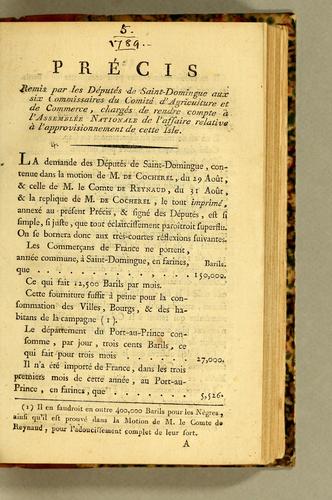 5.
1789.
PRÉCIS
Remis par les Députés de Saint-Domingue aux
six Commissaires du Comité d'Agriculture et
de Commerce, chargés de rendre compte à
l'ASSEMBLÉE NATIONALE de l'affaire relative
à l'approvisionnement de cette Isle.
LA demande des Députés de Saint-Domingue, con-
tenue dans la motion de M. DE COCHEREL, du 29 Août,
& celle de M. le Comte DE REYNAUD, du 31 Août,
& la replique de M. DE COCHEREL, le tout imprimé,
annexé au présent Précis, & signé des Députés, est si
simple, si juste, que tout éclaircissement paroîtroit superflu.
On se bornera donc aux très-courtes réflexions suivantes.
Les Commerçans de France ne portent,
année commune, à Saint-Domingue, en farines, Barils.
que . . . . . . . . . . . . 150,000.
Ce qui fait 12,500 Barils par mois.
Cette fourniture suffit à peine pour la con-
sommation des Villes, Bourgs, & des ha-
bitans de la campagne (1).
Le département du Port-au-Prince con-
somme, par jour, trois cents Barils, ce
qui fait pour trois mois . . . . . . . 27,000.
Il n'a été importé de France, dans les trois
premiers mois de cette année, au Port-au-
Prince, en farines, que . . . . . . . 5,526.
(1) Il en faudroit en outre 400,000 Barils pour les Nègres,
ainsi qu'il est prouvé dans la Motion de M. le Comte de
Reynaud, pour l'adoucissement complet de leur sort.
A